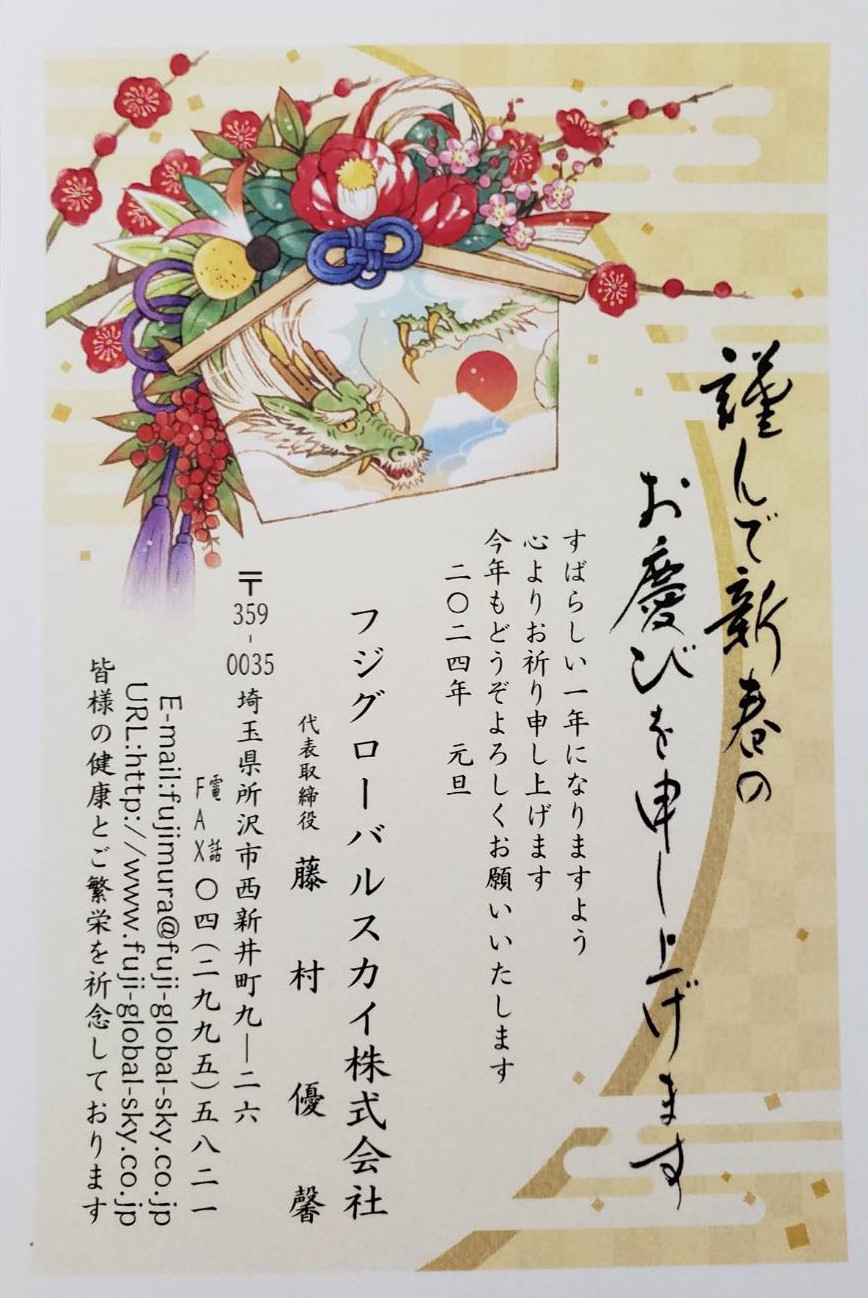 謹んで新春の
お慶びを申し上げます
すばらしい一年になりますよう
心よりお祈り申し上げます
今年もどうぞよろしくお願いいたします
二〇二四年 元旦
フジグローバルスカイ株式会社
代表取締役 藤村優馨
〒359-0035 埼玉県所沢市西新井町九―二六
電話
FAX 〇四(二九九五)五八二一
E-mail:fujimura@fuji-global-sky.co.jp
URL:http://www.fuji-global-sky.co.jp
皆様の健康とご繁栄を祈念しております